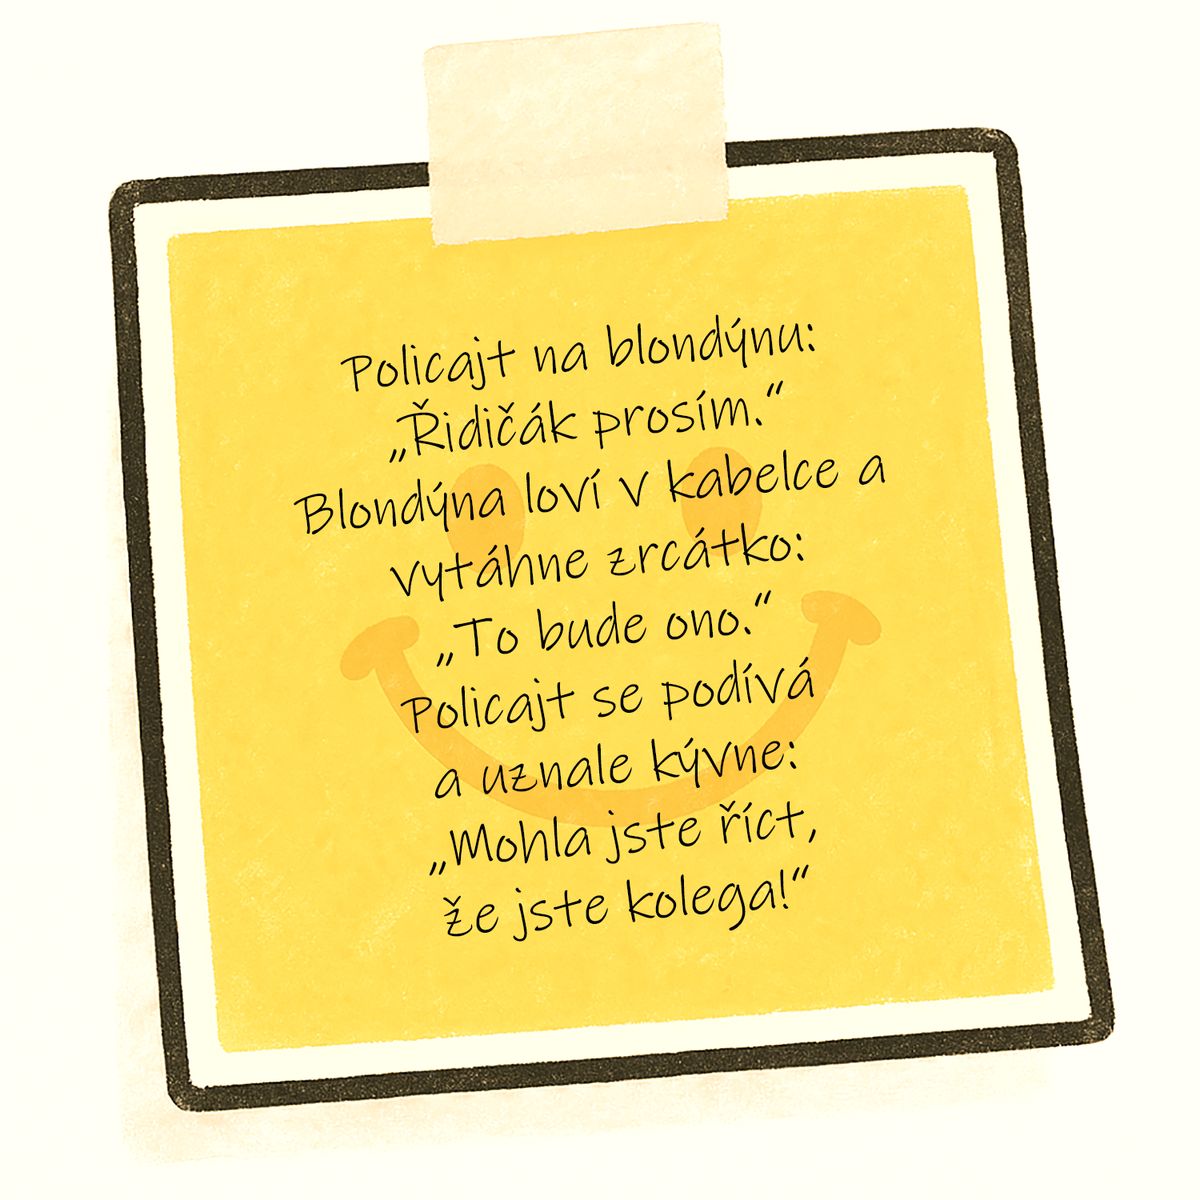 Policajt na blondýnu:
„Řidičák prosím.“
Blondýna loví v kabelce a
vytáhne zrcátko:
„To bude ono.“
Policajt se podívá
a uznale kývne:
„Mohla jste říct,
že jste kolega!“